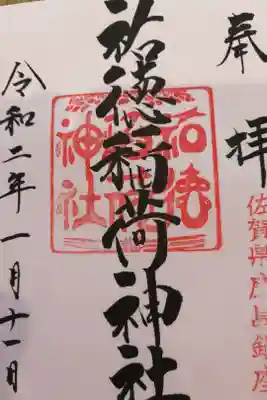 奉拝
佐賀県鹿島鎮座
祐徳稲荷神社
令和二年一月十一日